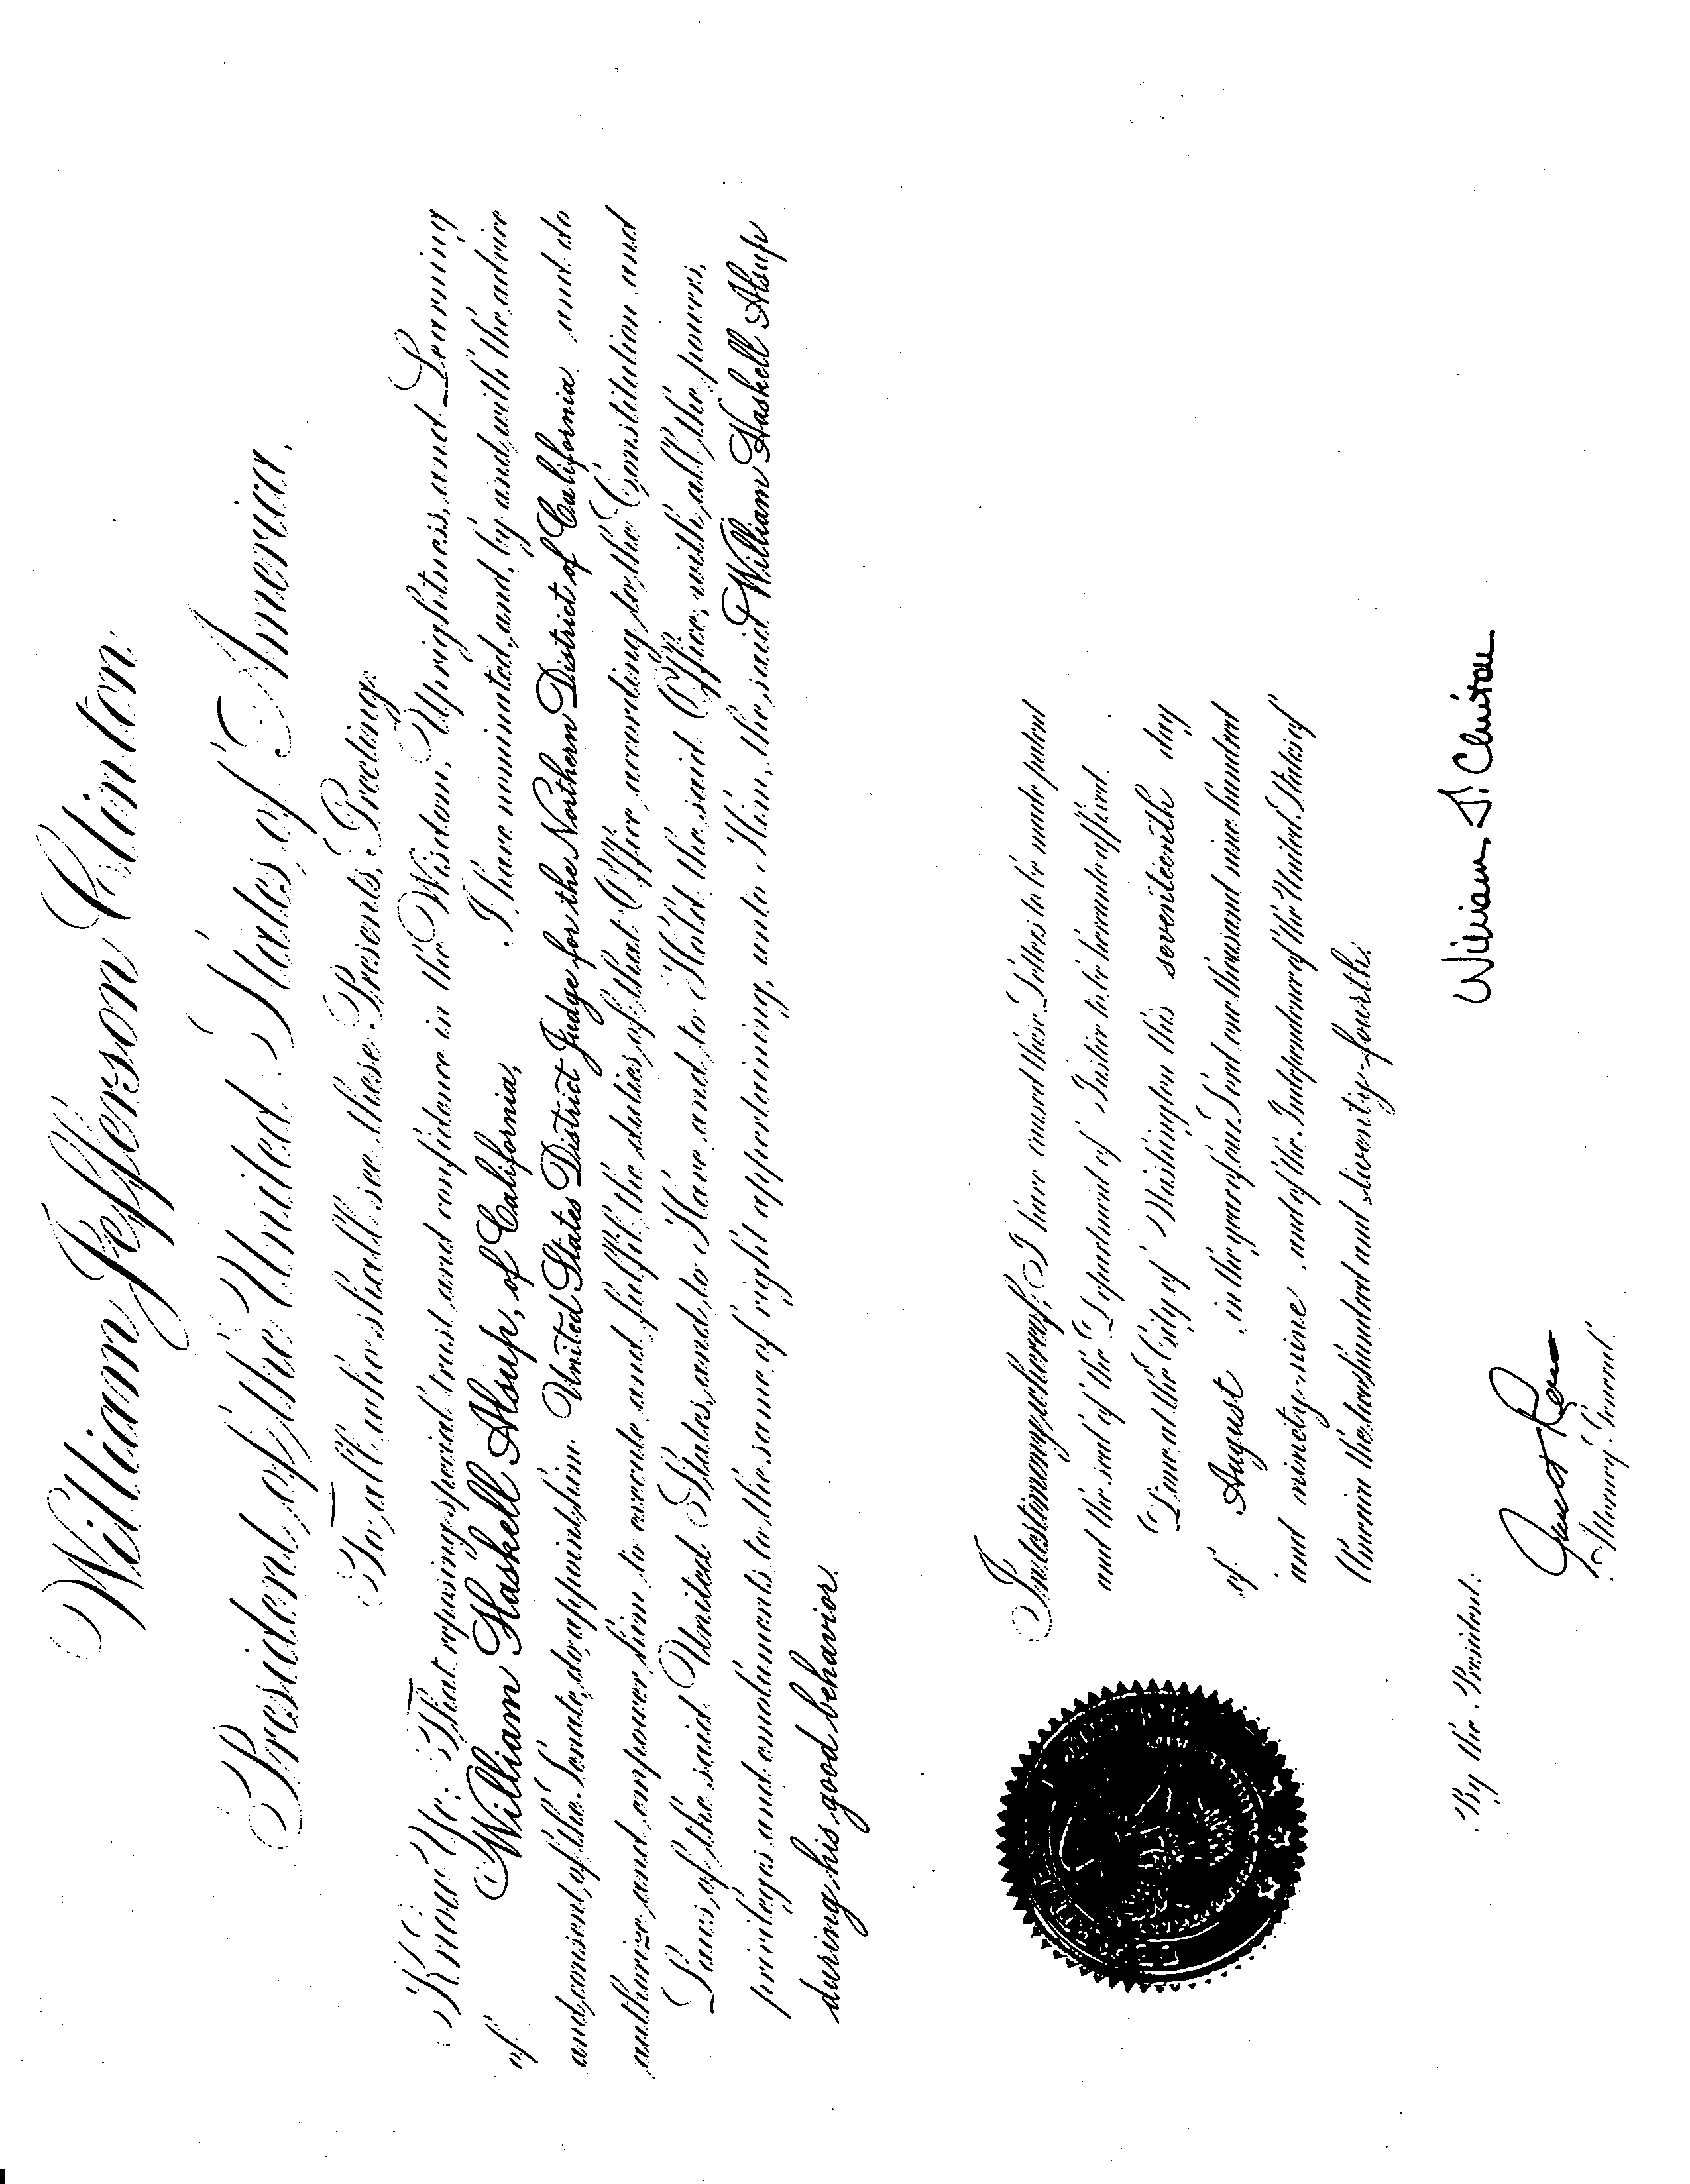 William Jefferson Clinton
President of the United States of America.
To all who shall see these Presents, Greeting:
Know Ye: That reposing special trust and confidence in the Wisdom, Uprightness, and Learning
of William Haskell Alsup, of California, I have nominated, and, by and with the advice
and consent, of the Senate, do appoint him United States District Judge for the Northern District of California and do
authorize and empower him to execute and fulfil the duties of that Office according to the Constitution and
Laws of the said United States, and to Have and to Hold the said Office, with all the powers,
privileges and emoluments to the same of right appertaining, unto Him, the said William Haskell Alsup
during his good behavior.
In testimony whereof, I have caused these Letters to be made patent
and the seal of the Department of Justice to be hereunto affixed.
Done at the City of Washington this seventeenth day
of August in the year of our Lord one thousand nine hundred
and ninety-nine and of the Independence of the United States of
America the two hundred and twenty-fourth.
William J. Clinton
By the President:
Janet Reno
Attorney General.